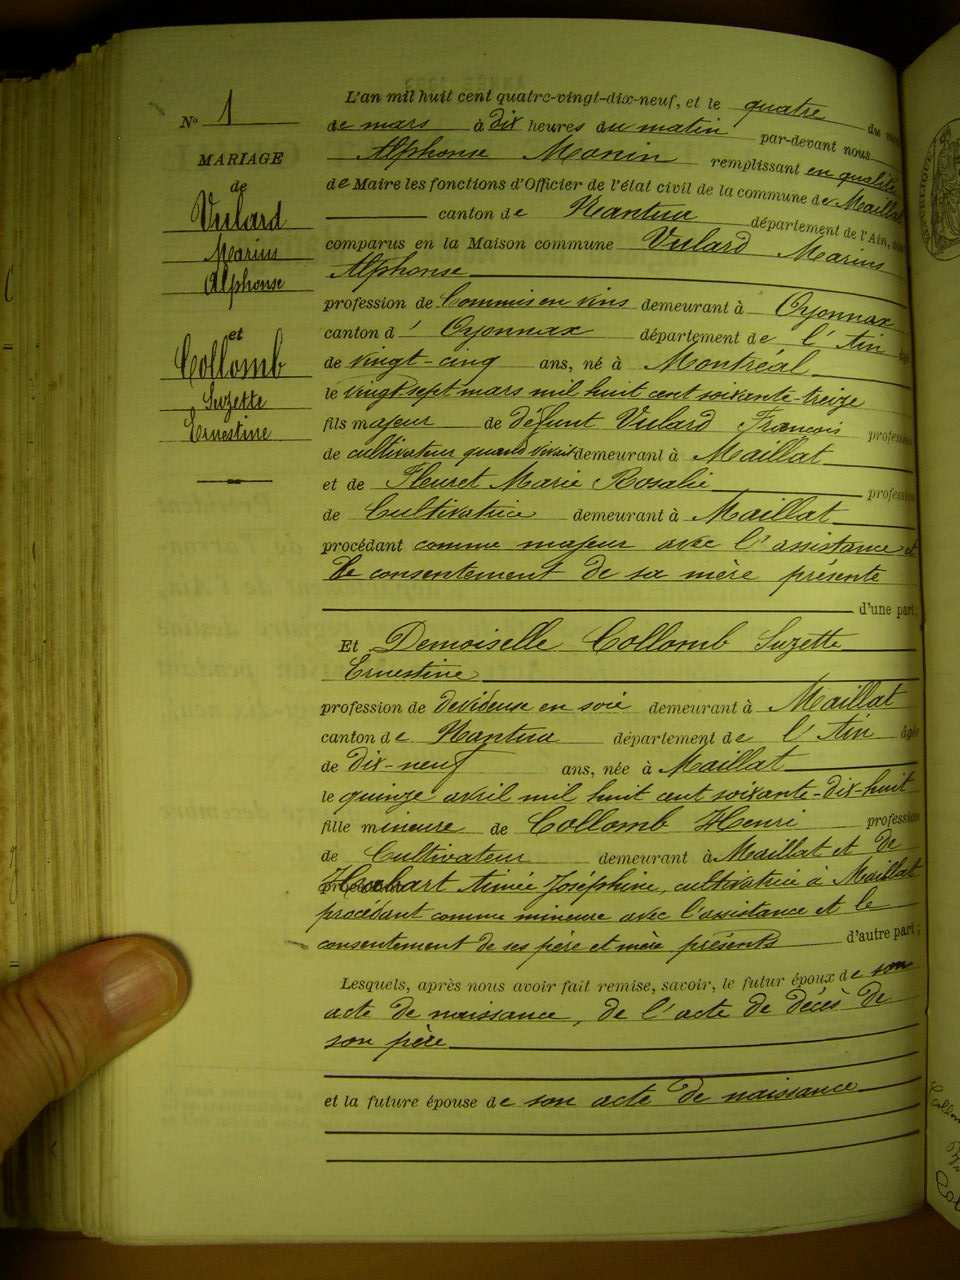 N° 1
MARIAGE
de
Vulard
Marius
Alphonse
et
Collomb
Suzette
Ernestine
L'an mil huit cent quatre-vingt-dix-neuf, et le quatre du
de mars à dix heures du matin par-devant nous
Alphonse Monin remplissant en qualité
de Maire les fonctions d'Officier de l'état civil de la commune de Maillat
canton de Nantua département de l'Ain,
comparus en la Maison commune Vulard Marius
Alphonse
profession de Commis en vins demeurant à Oyonnax
canton d' Oyonnax département de l'Ain âgé
de vingt-cinq ans, né à Montréal
le vingt sept mars mil huit cent soixante-treize
fils majeur de défunt Vulard François profession
de cultivateur quand vivait demeurant à Maillat
et de Fleuret Marie Rosalie profession
de Cultivatrice demeurant à Maillat
procédant comme majeur avec l'assistance et
le consentement de sa mère présente
d'une part;
Et Demoiselle Collomb Suzette
Ernestine
profession de dévideuse en soie demeurant à Maillat
canton de Nantua département de l'Ain âgée
de dix-neuf ans, née à Maillat
le quinze avril mil huit cent soixante-dix-huit
fille mineure de Collomb Henri profession
de Cultivateur demeurant à Maillat et de
Aimée Joséphine, cultivatrice à Maillat
procédant comme mineure avec l'assistance et le
consentement de ses père et mère présents d'autre part;
Lesquels, après nous avoir fait remise, savoir, le futur époux de son
acte de naissance, de l'acte de décès de
son père
et la future épouse de son acte de naissance